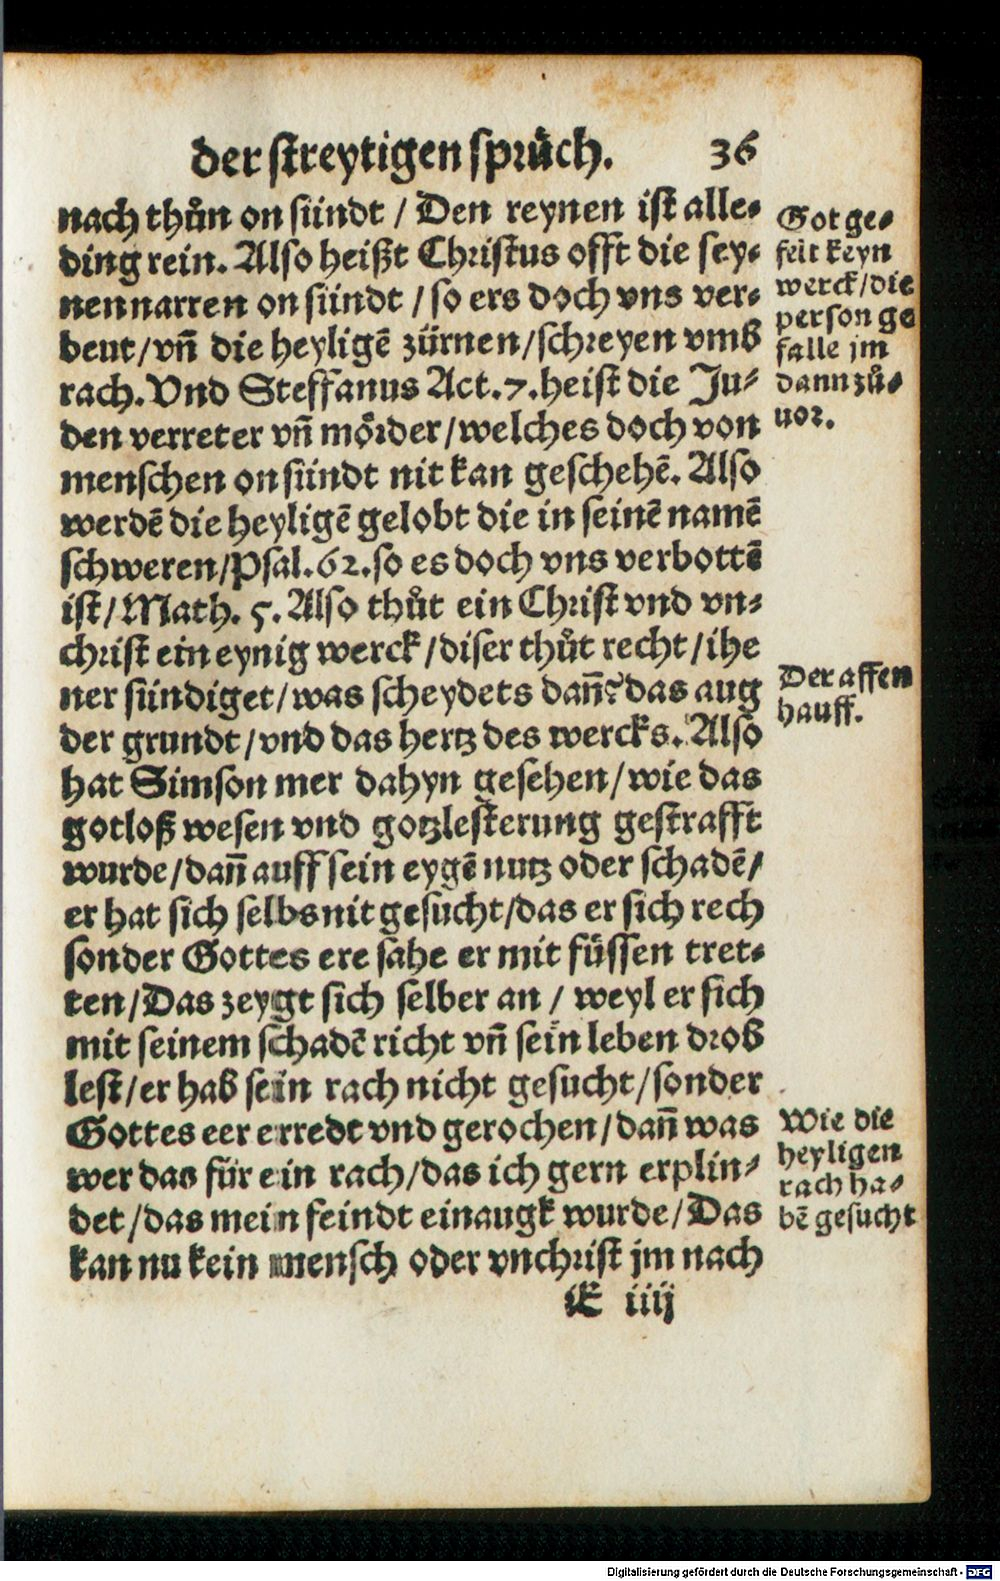 der streytigen sprüch. 36
nach thůn on sündt / Den reynen ist alle⸗
ding rein. Also heißt Christus offt die sey⸗
nen narren on sündt / so ers doch vns ver⸗
beut / vñ die heyligē zürnen / schreyen vmb
rach. Vnd Steffanus Act. 7. heist die Ju⸗
den verreter vñ mörder / welches doch von
menschen on sündt nit kan geschehē. Also
werdē die heyligē gelobt die in seinē namē
schweren / Psal. 62. so es doch vns verbottē
ist / Math. 5. Also thůt ein Christ vnd vn⸗
christ ein eynig werck / diser thůt recht / ihe
ner sündiget / was scheydets dañ? das aug
der grundt / vnd das hertz des wercks. Also
hat Simson mer dahyn gesehen / wie das
gotloß wesen vnd gotzlesterung gestrafft
wurde / dañ auff sein eygē nutz oder schadē /
er hat sich selbs nit gesucht / das er sich rech
sonder Gottes ere sahe er mit füssen tret⸗
ten / Das zeygt sich selber an / weyl er sich
mit seinem schadē richt vñ sein leben drob
lest / er hab sein rach nicht gesucht / sonder
Gottes eer erredt vnd gerochen / dañ was
wer das für ein rach / das ich gern erplin⸗
det / das mein feindt einaugk wurde / Das
kan nu kein mensch oder vnchrist jm nach
E iiij
Got ge⸗
felt keyn
werck / die
person ge
falle jm
dann zů⸗
uor.
Der affen
hauff.
Wie die
heyligen
rach ha⸗
bē gesucht
Digitalisierung gefördert durch die Deutsche Forschungsgemeinschaft - DFG